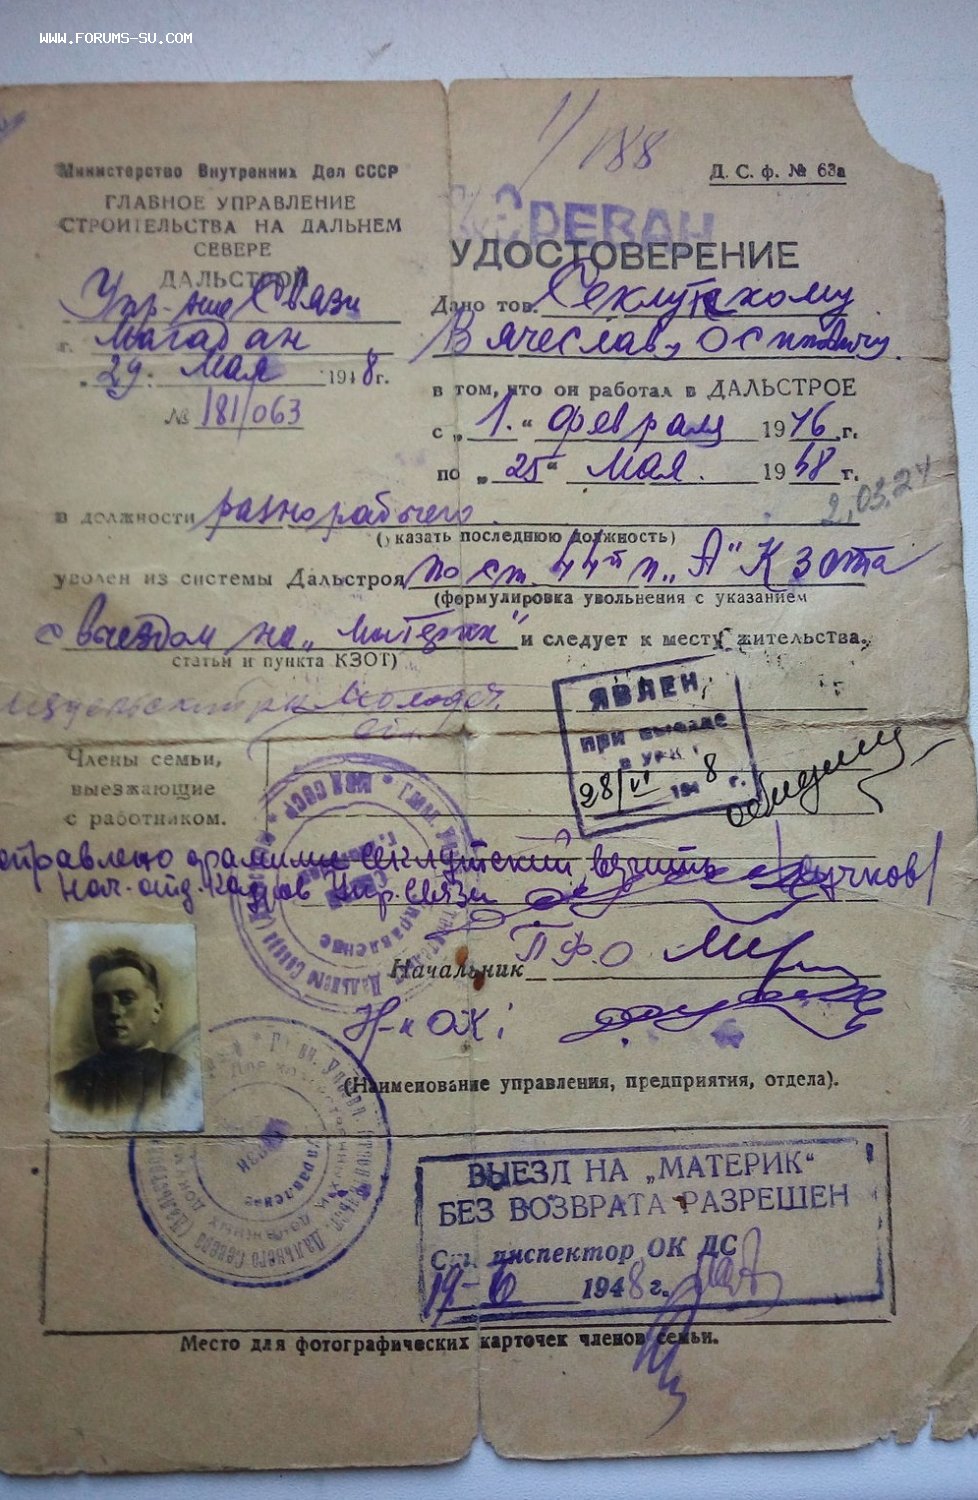 WWW.FORUMS-SU.COM
1/188
Министерство Внутренних Дел СССР
ГЛАВНОЕ УПРАВЛЕНИЕ
СТРОИТЕЛЬСТВА НА ДАЛЬНЕМ
СЕВЕРЕ
ДАЛЬСТРОЙ
Упр-ние Связи
г. Магадан
„29" Мая 1948г.
№ 181/063
Д. С. ф. № 63а
ЕРЕВАН
УДОСТОВЕРЕНИЕ
Дано тов. Секлутскому
Вячеславу Осиповичу
в том, что он работал в ДАЛЬСТРОЕ
с „1." февраля 1946г.
по „25" Мая. 1948г.
2,03,24
в должности разнорабочего.
(указать последнюю должность)
уволен из системы Дальстроя по ст. 44й п „А" Кзота
(формулировка увольнения с указанием
с выездом на „материк" и следует к месту жительства.
статьи и пункта КЗОТ)
ЯВЛЕН
при выезде
28/VI 1948 г.
Члены семьи,
выезжающие
с работником.
фамилие Секлутский, верить
Нач. отд. Кадров Упр. Связи
Начальник
Н-к ОК:
(Наименование управления, предприятия, отдела).
ВЫЕЗД НА „МАТЕРИК"
БЕЗ ВОЗВРАТА РАЗРЕШЕН
инспектор ОК ДС
19-6 1948г.
Место для фотографических карточек членов семьи.